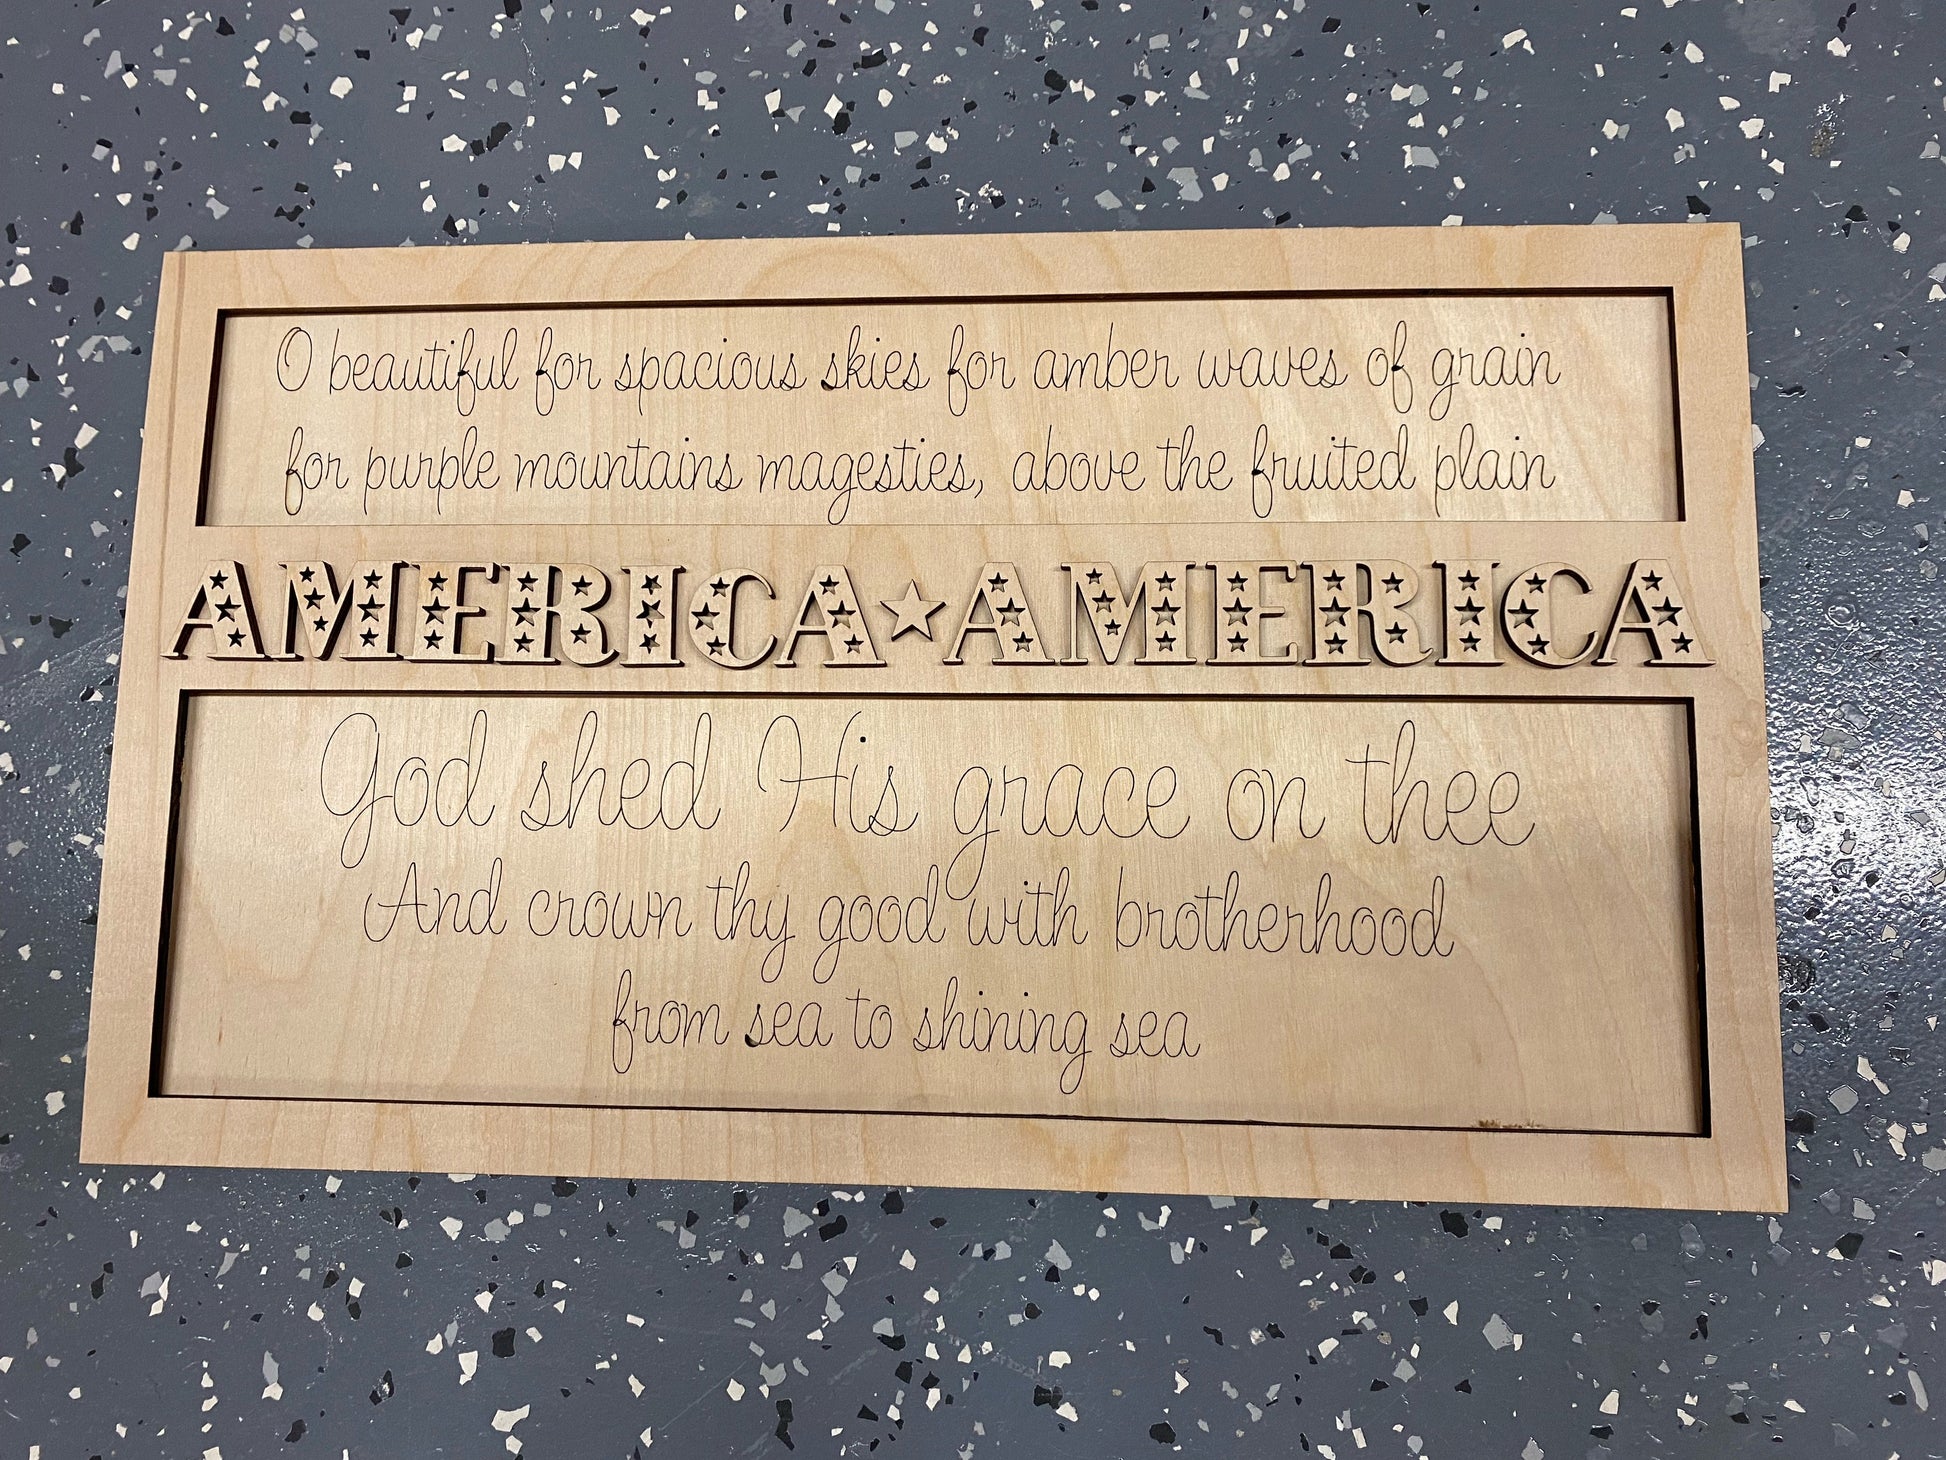 O beautiful for spacious skies for amber waves of grain
for purple mountains magesties, above the fruited plain
AMERICA★AMERICA
God shed His grace on thee
And crown thy good with brotherhood
from sea to shining sea